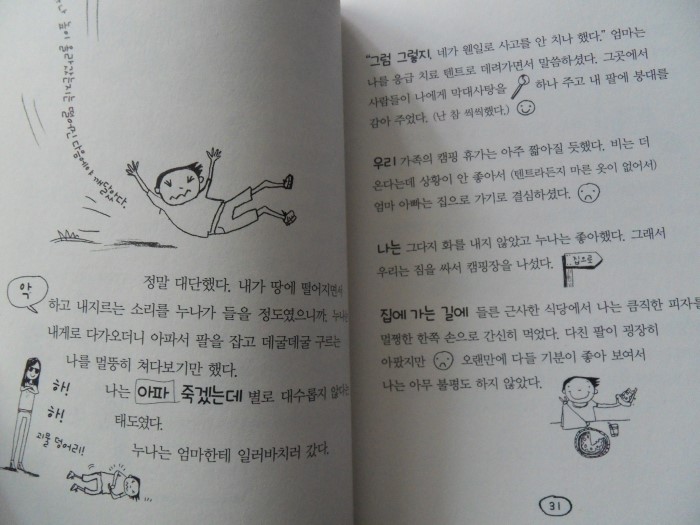 깨달았다.
정말 대단했다. 내가 땅에 떨어지면서
악
하고 내지르는 소리를 누나가 들을 정도였으니까. 누나는
내게로 다가오더니 아파서 팔을 잡고 데굴데굴 구르는
나를 멀뚱히 쳐다보기만 했다.
나는 아파 죽겠는데 별로 대수롭지 않다는
태도였다.
누나는 엄마한테 일러바치러 갔다.
하!
하!
괴물 덩어리!
"그럼 그렇지. 네가 웬일로 사고를 안 치나 했다." 엄마는
나를 응급 치료 텐트로 데려가면서 말씀하셨다. 그곳에서
사람들이 나에게 막대사탕을 하나 주고 내 팔에 붕대를
감아 주었다. (난 참 씩씩했다.)
우리 가족의 캠핑 휴가는 아주 짧아질 듯했다. 비는 더
온다는데 상황이 안 좋아서 (텐트라든지 마른 옷이 없어서)
엄마 아빠는 집으로 가기로 결심하셨다.
나는 그다지 화를 내지 않았고 누나는 좋아했다. 그래서
우리는 짐을 싸서 캠핑장을 나섰다. 집으로
집에 가는 길에 들른 근사한 식당에서 나는 큼직한 피자를
멀쩡한 한쪽 손으로 간신히 먹었다. 다친 팔이 굉장히
아팠지만 오랜만에 다들 기분이 좋아 보여서
나는 아무 불평도 하지 않았다.
31